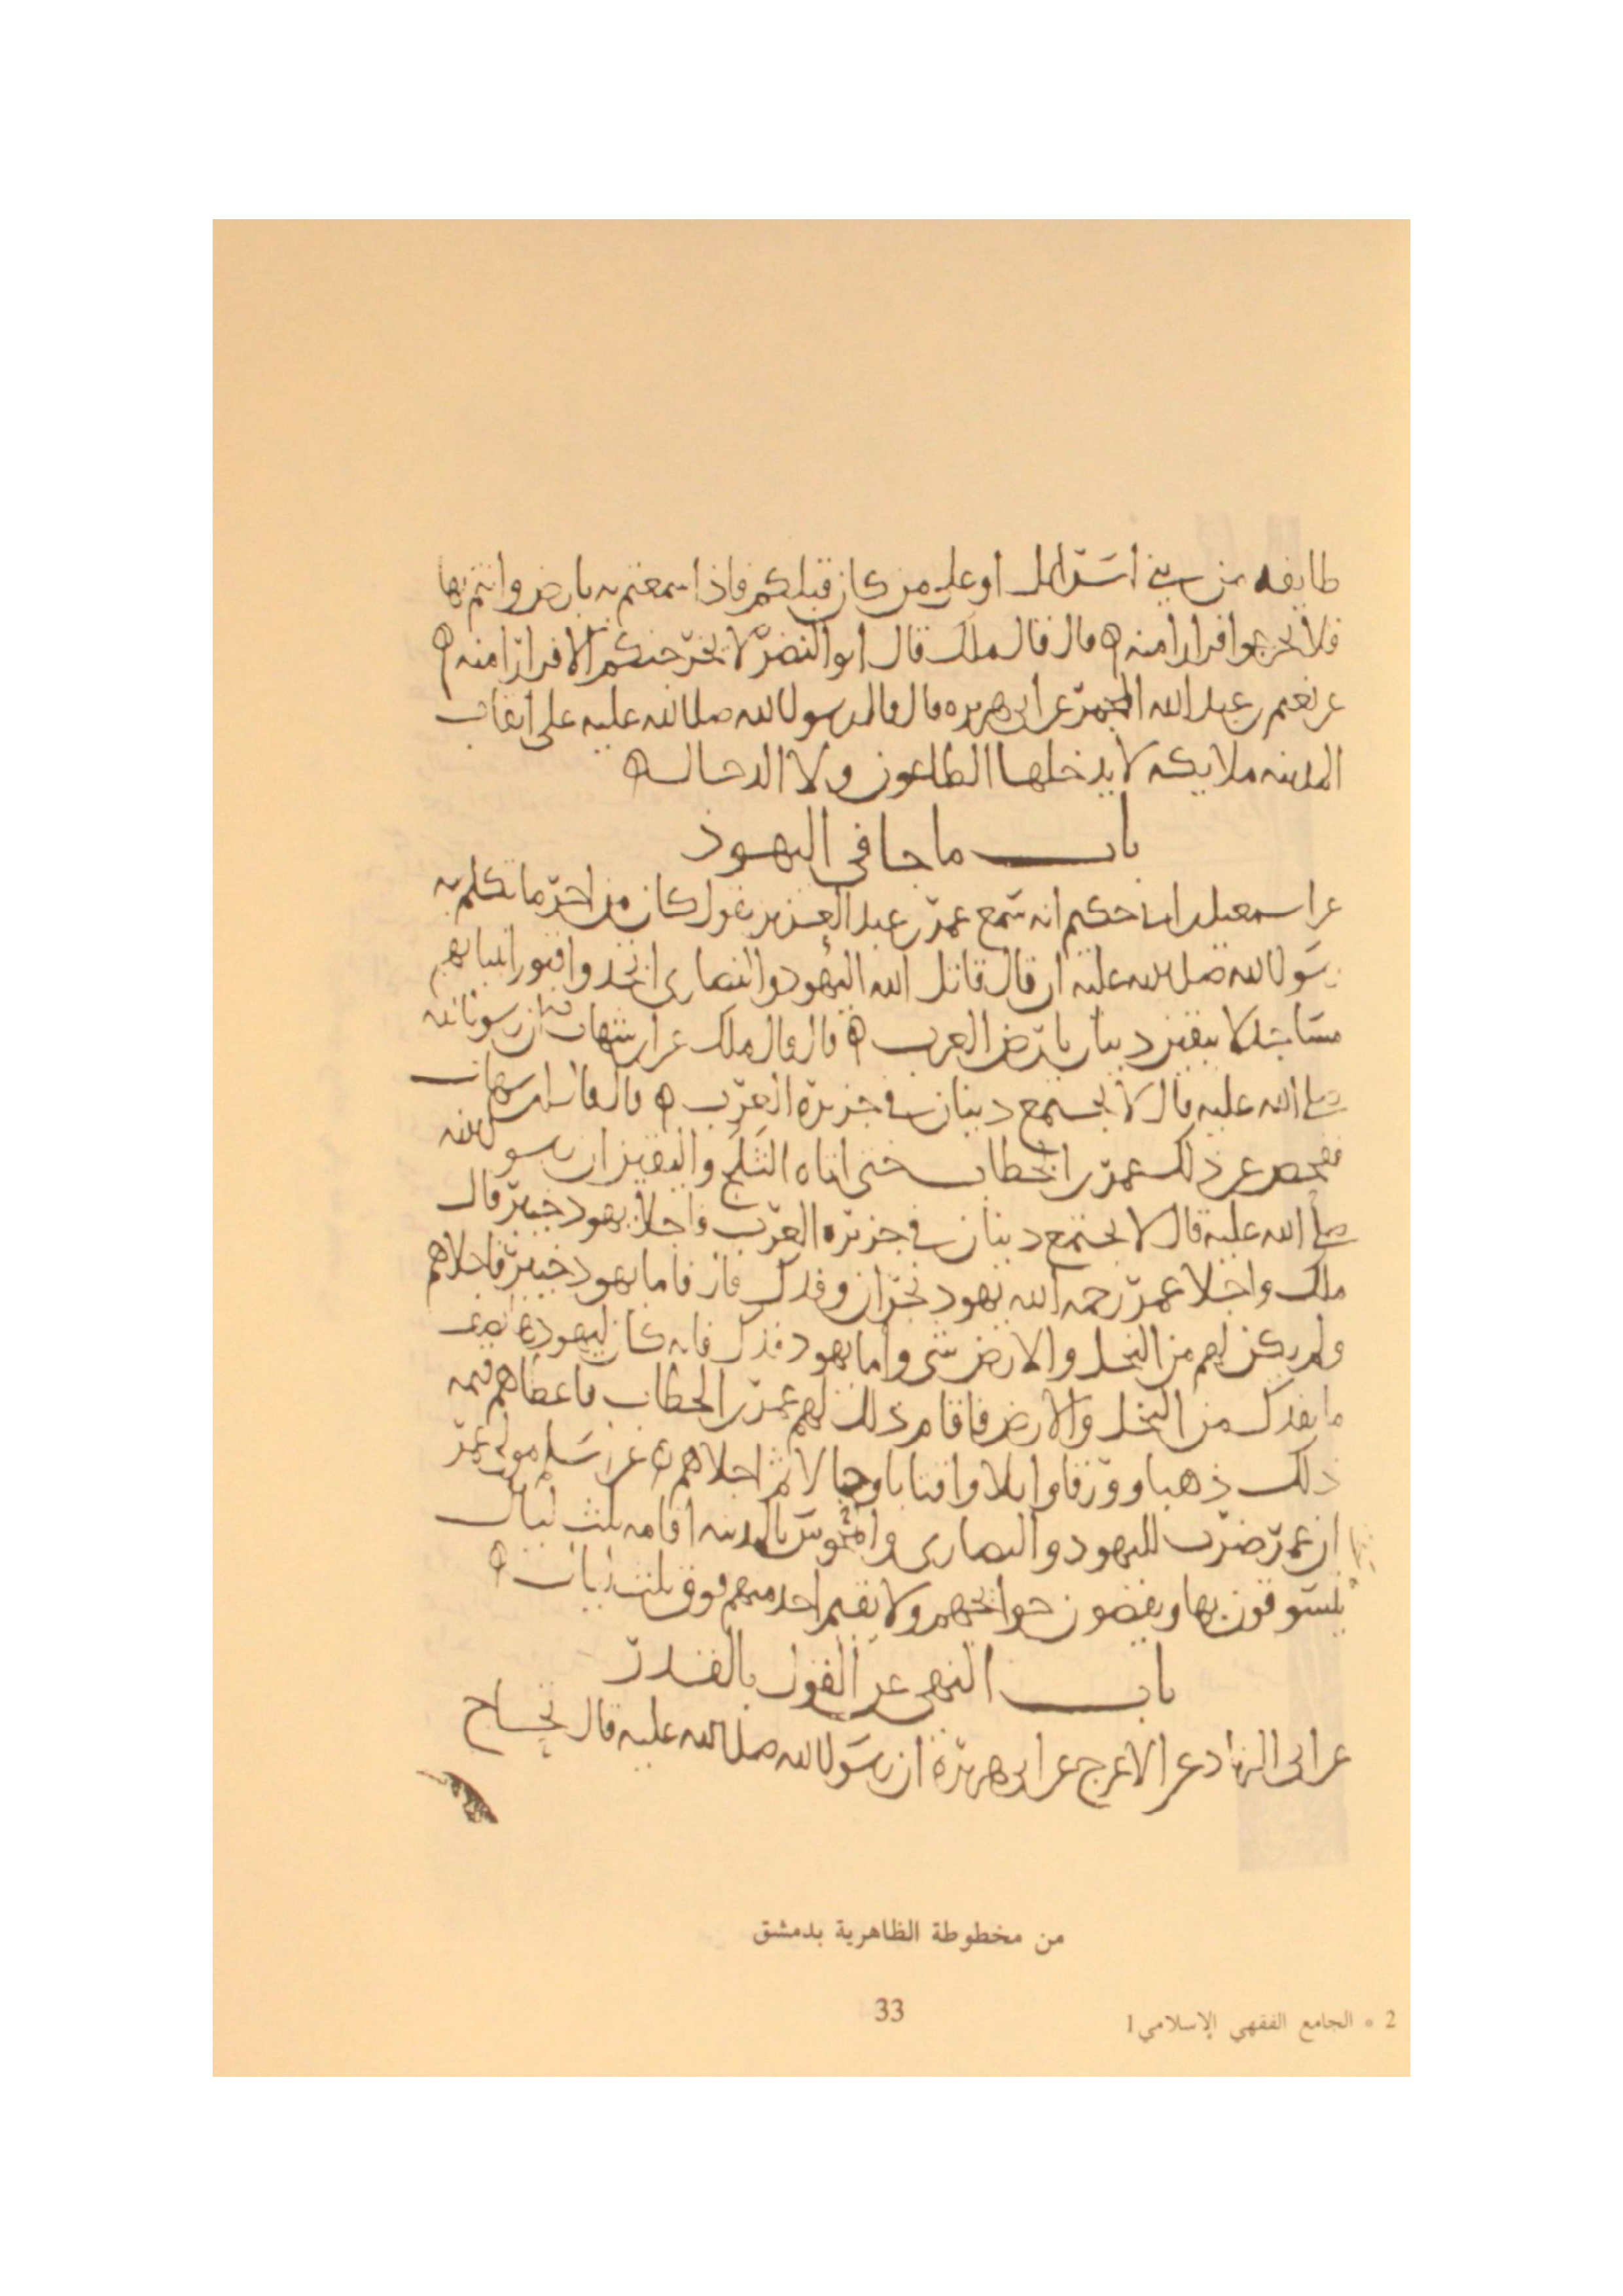 طايفه من بني اسرايل او على من كان قبلكم فاذا سمعتم به بارض وانتم بها
فلا تخرجوا فرارا منه ه قال قال ملك قال ابو النضر لا يخرجنكم الا فرارا منه ه
عن نعيم بن عبد الله المجمر عن ابي هريره قال قال رسول الله صلى الله عليه على انقاب
المدينه ملايكه لا يدخلها الطاعون ولا الدجال ه
باب ما جا في اليهود
عن اسمعيل بن ابي حكيم انه سمع عمر بن عبد العزيز يقول كان من اخر ما تكلم به
رسول الله صلى الله عليه ان قال قاتل الله اليهود والنصارى اتخذوا قبور انبيايهم
مساجد لا يبقين دينان بارض العرب ه قال قال ملك عن ابن شهاب ان رسول الله
صلى الله عليه قال لا يجتمع دينان في جزيرة العرب ه قال قال ابن شهاب
ففحص عن ذلك عمر بن الخطاب حتى اتاه الثلج واليقين ان رسول الله
صلى الله عليه قال لا يجتمع دينان في جزيره العرب فاجلا يهود خيبر قال
ملك واجلا عمر رحمه الله يهود نجران وفدك قال فاما يهود خيبر فاجلاهم
ولم يكن لهم من النخل والارض شي واما يهود فدك فانه كان لليهود نصف
ما بفدك من النخل والارض فاقام ذلك لهم عمر بن الخطاب فاعطاهم قيمه
ذلك ذهبا وورقا وابلا واقتابا وحبالا ثم اجلاهم ه عن اسلم مولى عمر
ان عمر ضرب لليهود والنصارى والمجوس بالمدينه اقامه ثلث ليال
يتسوقون بها ويقضون حوايجهم ولا يقيم احد منهم فوق ثلث ليال ه
باب النهي عن القول بالقدر
عن ابي الزناد عن الاعرج عن ابي هريرة ان رسول الله صلى الله عليه قال تحاج
من مخطوطة الظاهرية بدمشق
33
2 * الجامع الفقهي الإسلامي 1